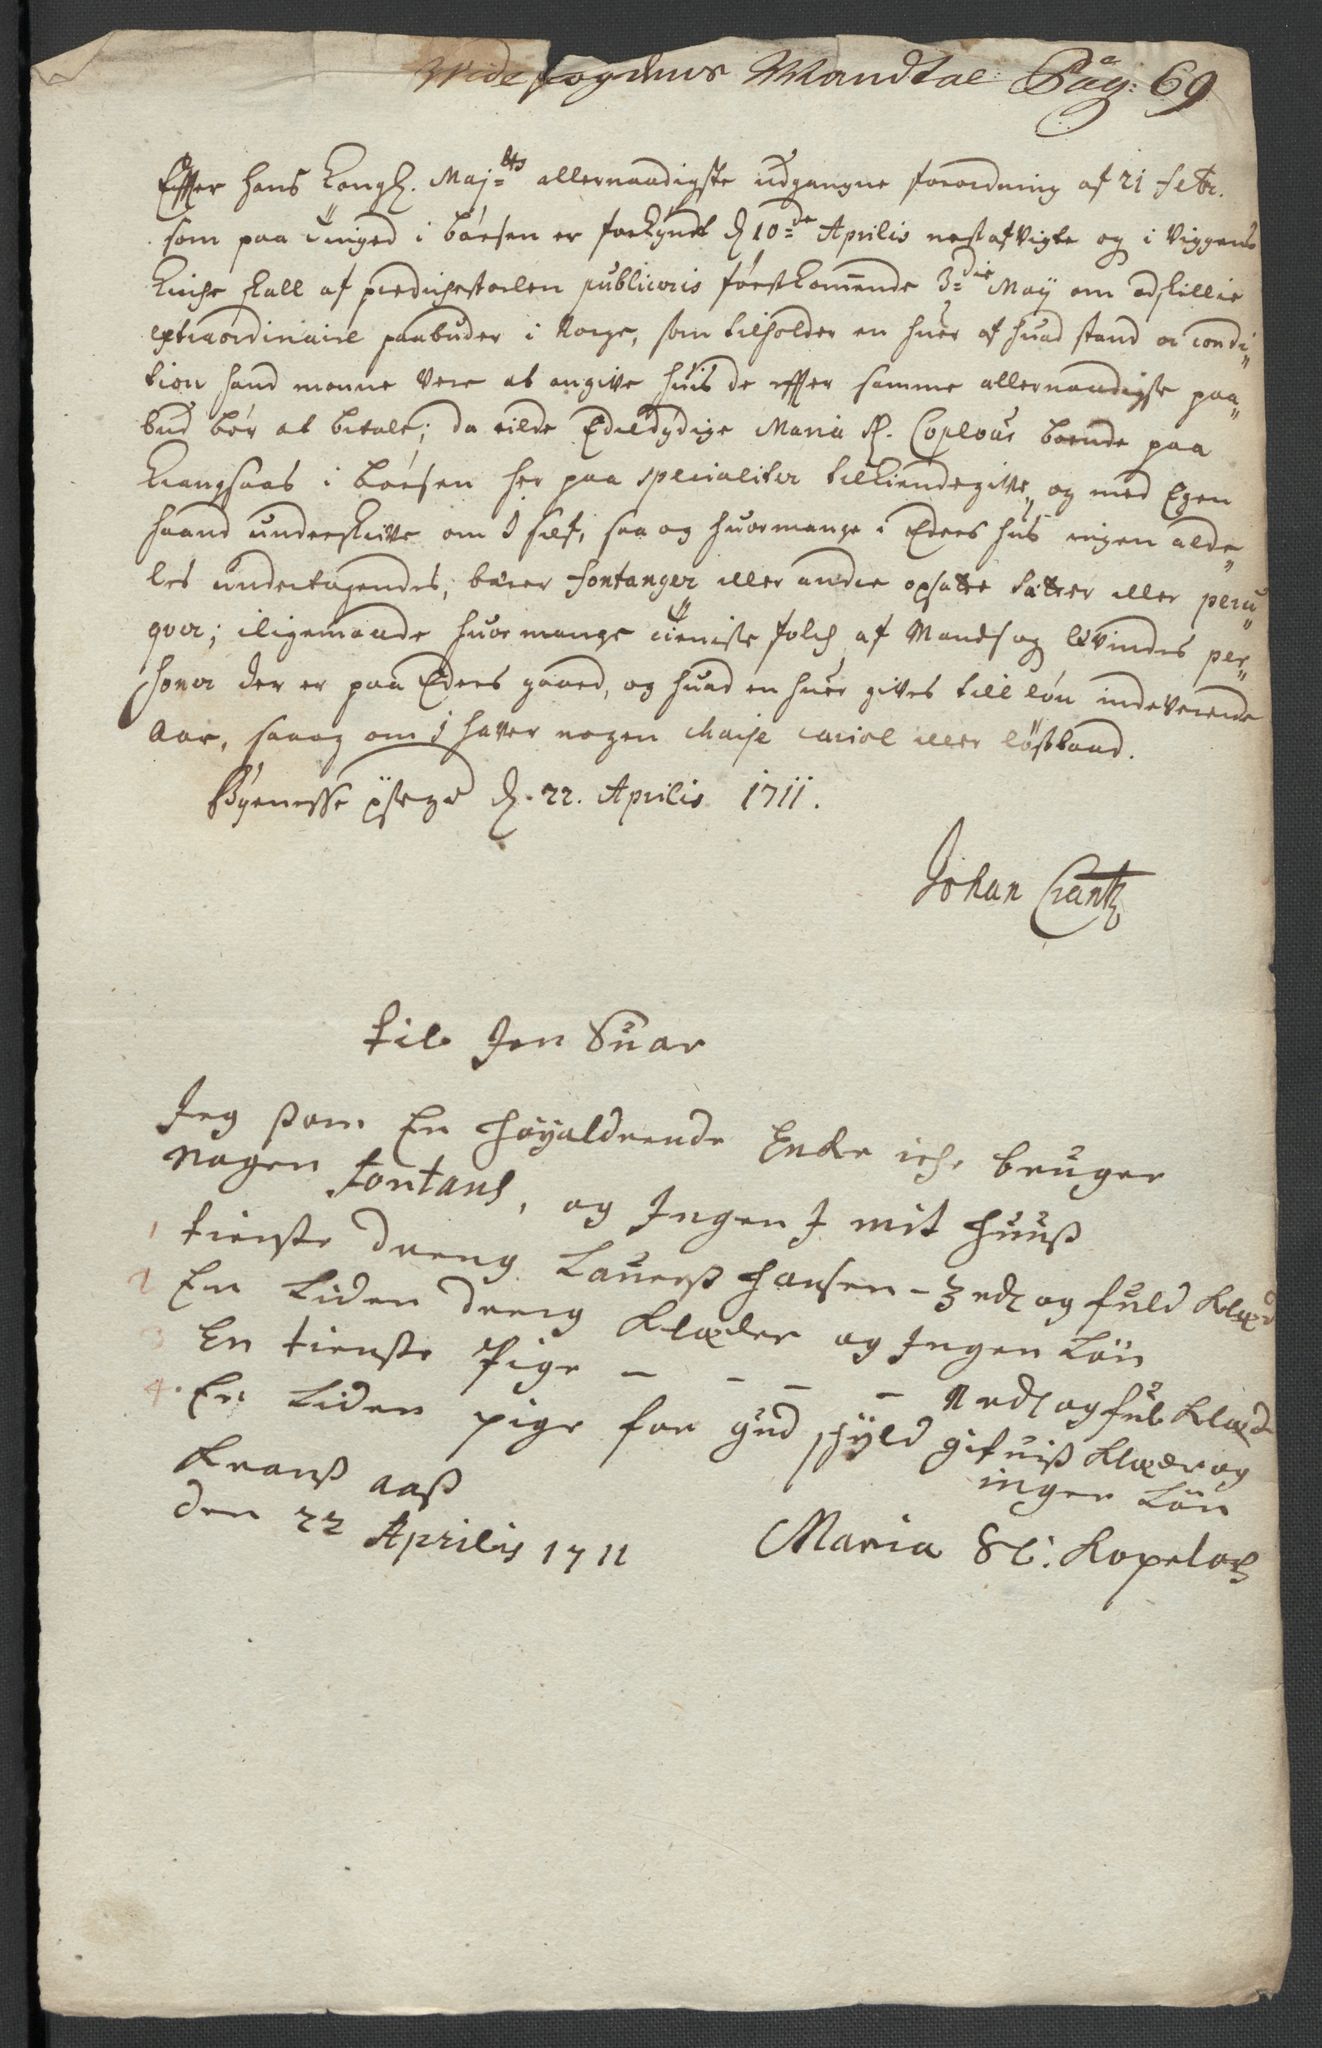 Vide fogdens Mandtal Pag: 69
Effter hans Kongl. Maj=ts allernaadigste udgangne forordning af 21 febr.
som paa tinged i børsen er forkyndt d 10=de Aprilis nest afvigte og i Viggens
Kirche skall af predichestoelen publiceris førstkommende 3=die Maÿ om adskillie
extraordinaire paabuder i Norge, som tilholder en huer af huad stand oc condi„
tion hand monne vere at angive huis de effter samme allernaadigste paa„
bud bør at betale; da vilde Edeldydige Maria Sl. Coplous boende paa
Krangsaas i børsen her paa specialiter tilkiendegifve, og med Egen
haand underskrifve om I self, saa og huormange i Eders hus ingen alde„
les undertagendes, bærer fontanger eller andre opsatte sætter eller peru„
qver; iligemaade huor mange tieniste folch af Mands og Qvindes per„
soner der er paa Eders gaard, og huad en huer gives till løn indeverende
Aar, saa og om I hafver nogen Chaise cariol eller
Bÿenesse d. 22. Aprilis 1711.
Johan Crantz
til Jen Suar
Jeg som En høÿaldrende Enke iche bruger
nogen fontans, og Ingen I mit huuß
1 tienste dreng Lauerß hansen - 3 rdl og fuld Klæd
2 En Liden dreng Klæder og Ingen Løn
3 En tienste Pige - - - - 2 rdl og ful Klæde
4. En Liden pige for gud skÿld gifuiß Klæder og
ingen Løn
Kranß aaß
den 22 Aprilis 1711
Maria Sl: Kopelous